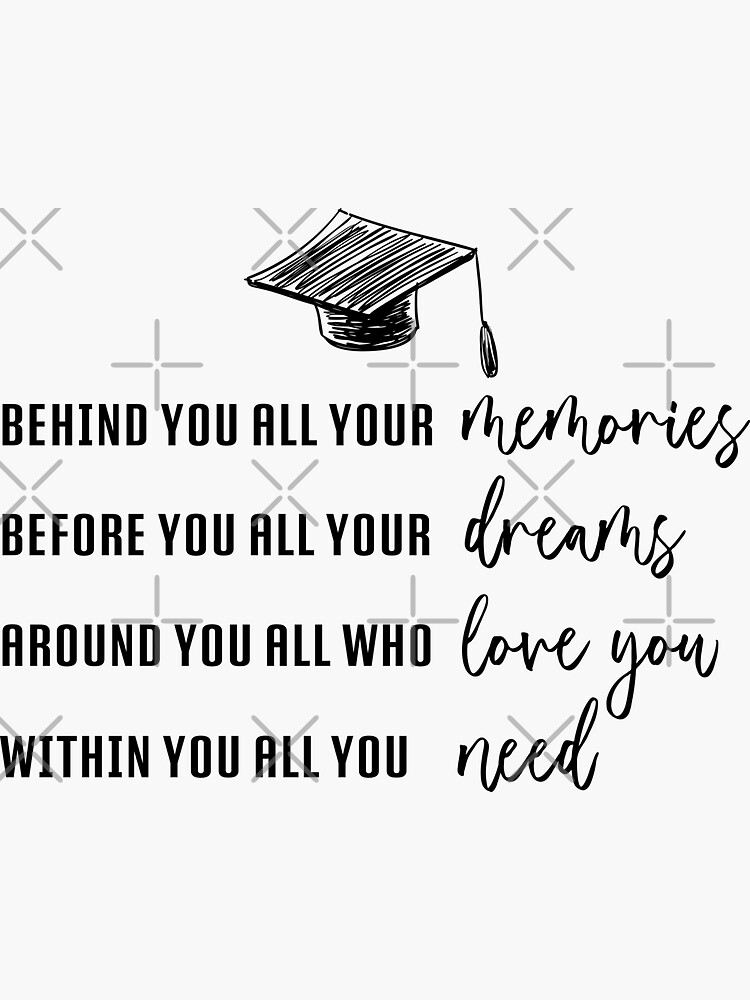 BEHIND YOU ALL YOUR memories
BEFORE YOU ALL YOUR dreams
AROUND YOU ALL WHO love you
WITHIN YOU ALL YOU need